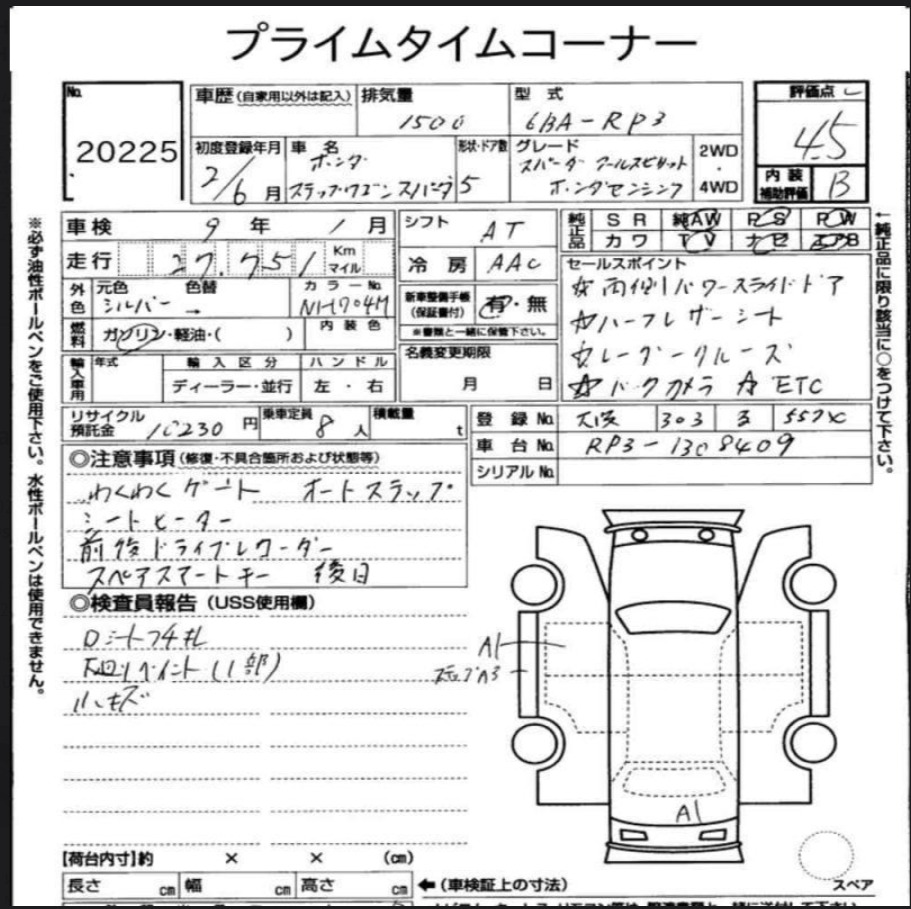 プライムタイムコーナー
No. 20225
車歴(自家用以外は記入) 排気量 1500
型式 6BA-RP3
評価点 4.5
初度登録年月 2/6月
車名 ホンダ ステップワゴンスパーダ
形状・ドア数 5
グレード スパーダ クールスピリット ホンダセンシング
2WD・4WD
内装補助評価 B
車検 9年1月
シフト AT
純正品 SR 純AW PS PW
カワ TV ナビ エアB
走行 27,751 Km マイル
冷房 AAC
セールスポイント
☆両側パワースライドドア
☆ハーフレザーシート
☆レーダークルーズ
☆バックカメラ ☆ETC
外色 元色 シルバー 色替 → カラーNo. NH704M
新車整備手帳(保証書付) 有・無
※書類と一緒に保管下さい。
燃料 ガソリン・軽油・( ) 内装色
名義変更期限 月 日
輸入車用 年式 輸入区分 ディーラー・並行 ハンドル 左・右
リサイクル預託金 10230円 乗車定員 8人 積載量 t
登録No. 大阪 303
車台No. RP3-1308409
シリアルNo.
◎注意事項(修復・不具合箇所および状態等)
わくわくゲート オートステップ
シートヒーター
前後ドライブレコーダー
スペアスマートキー 後日
◎検査員報告(USS使用欄)
下回りペイント(1部)
小キズ
A1
ステップA3
A1
【荷台内寸】約 × × (cm)
長さ cm 幅 cm 高さ cm
←(車検証上の寸法)
スペア
※必ず油性ボールペンをご使用下さい。水性ボールペンは使用できません。
←純正品に限り該当に○をつけて下さい。